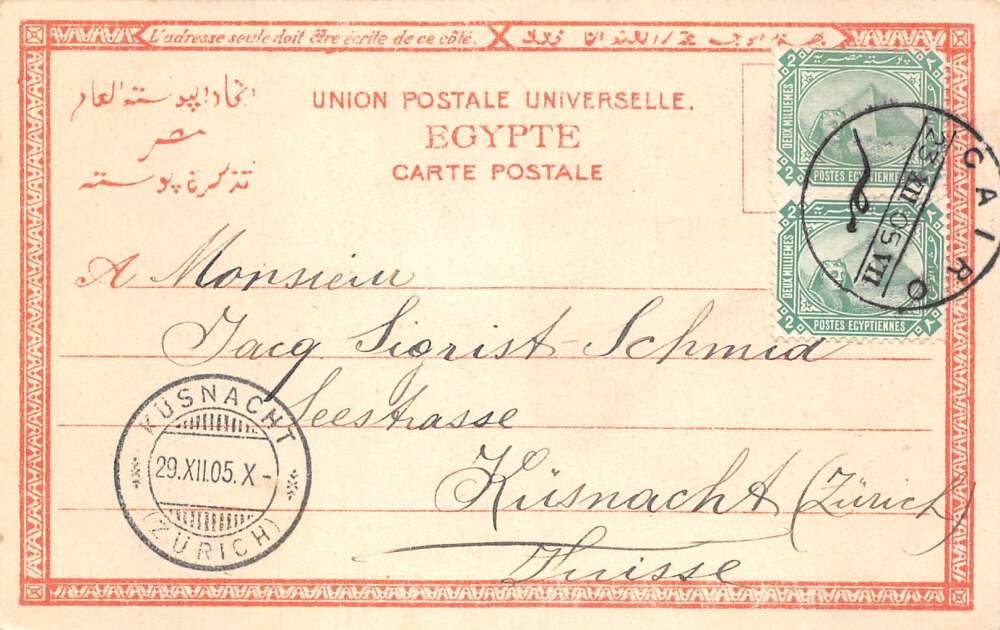 L'adresse seule doit être écrite de ce côté.
اتحاد البوسته العام
مصر
تذكرة بوسته
UNION POSTALE UNIVERSELLE.
EGYPTE
CARTE POSTALE
2 بوستة مصرية ٢
DEUX MILLIEMES
POSTES EGYPTIENNES
2 ٢
2 ٢
DEUX MILLIEMES
POSTES EGYPTIENNES
2 ٢
CAIRO
23 XII 05 VII
A Monsieur
Jacq Sigrist-Schmid
Seestrasse
Küsnacht (Zürich)
Suisse
KÜSNACHT
29.XII.05. X-
(ZÜRICH)